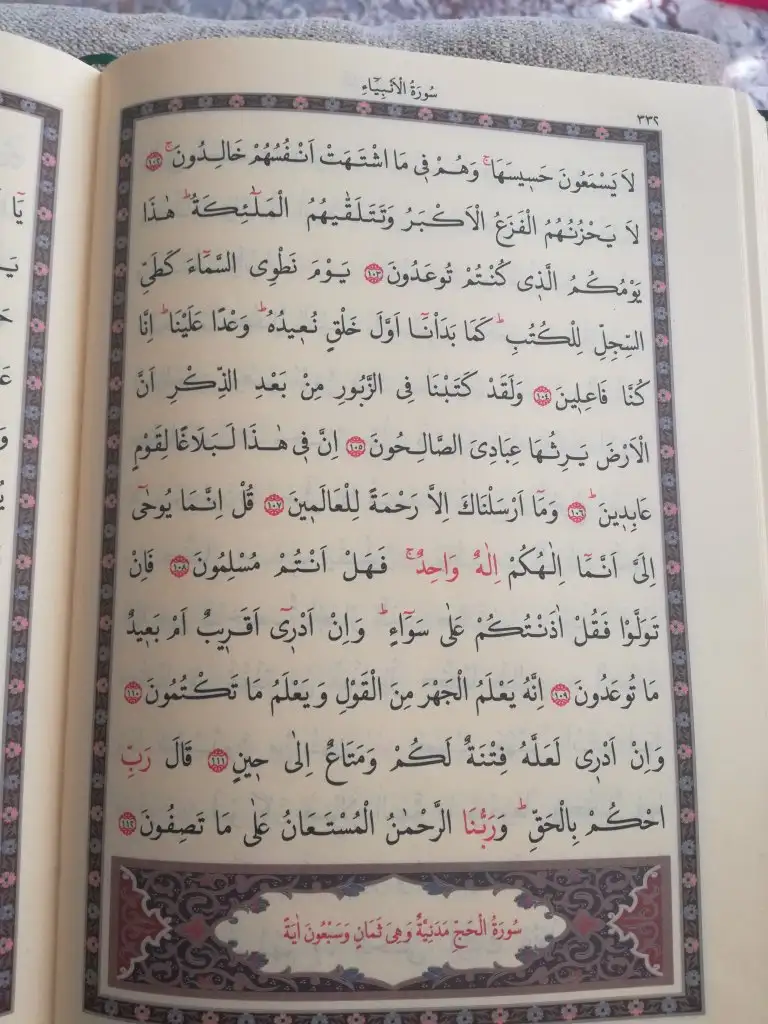 سُورَةُ الْاَنْبِيَٓاءِ
٣٣٢
لَا يَسْمَعُونَ حَسٖيسَهَاۚ وَهُمْ فٖى مَا اشْتَهَتْ اَنْفُسُهُمْ خَالِدُونَۚ ١٠٢
لَا يَحْزُنُهُمُ الْفَزَعُ الْاَكْبَرُ وَتَتَلَقّٰيهُمُ الْمَلٰٓئِكَةُۜ هٰذَا
يَوْمُكُمُ الَّذٖى كُنْتُمْ تُوعَدُونَ ١٠٣ يَوْمَ نَطْوِى السَّمَٓاءَ كَطَىِّ
السِّجِلِّ لِلْكُتُبِۜ كَمَا بَدَاْنَٓا اَوَّلَ خَلْقٍ نُعٖيدُهُۜ وَعْدًا عَلَيْنَاۜ اِنَّا
كُنَّا فَاعِلٖينَ ١٠٤ وَلَقَدْ كَتَبْنَا فِى الزَّبُورِ مِنْ بَعْدِ الذِّكْرِ اَنَّ
الْاَرْضَ يَرِثُهَا عِبَادِىَ الصَّالِحُونَ ١٠٥ اِنَّ فٖى هٰذَا لَبَلَاغًا لِقَوْمٍ
عَابِدٖينَۜ ١٠٦ وَمَٓا اَرْسَلْنَاكَ اِلَّا رَحْمَةً لِلْعَالَمٖينَ ١٠٧ قُلْ اِنَّمَا يُوحٰٓى
اِلَىَّ اَنَّمَٓا اِلٰهُكُمْ اِلٰهٌ وَاحِدٌۚ فَهَلْ اَنْتُمْ مُسْلِمُونَ ١٠٨ فَاِنْ
تَوَلَّوْا فَقُلْ اٰذَنْتُكُمْ عَلٰى سَوَٓاءٍۜ وَاِنْ اَدْرٖٓى اَقَرٖيبٌ اَمْ بَعٖيدٌ
مَا تُوعَدُونَ ١٠٩ اِنَّهُ يَعْلَمُ الْجَهْرَ مِنَ الْقَوْلِ وَيَعْلَمُ مَا تَكْتُمُونَ ١١٠
وَاِنْ اَدْرٖى لَعَلَّهُ فِتْنَةٌ لَكُمْ وَمَتَاعٌ اِلٰى حٖينٍ ١١١ قَالَ رَبِّ
احْكُمْ بِالْحَقِّۜ وَرَبُّنَا الرَّحْمٰنُ الْمُسْتَعَانُ عَلٰى مَا تَصِفُونَ ١١٢
سُورَةُ الْحَجِّ مَدَنِيَّةٌ وَهِىَ ثَمَانٍ وَسَبْعُونَ اٰيَةً